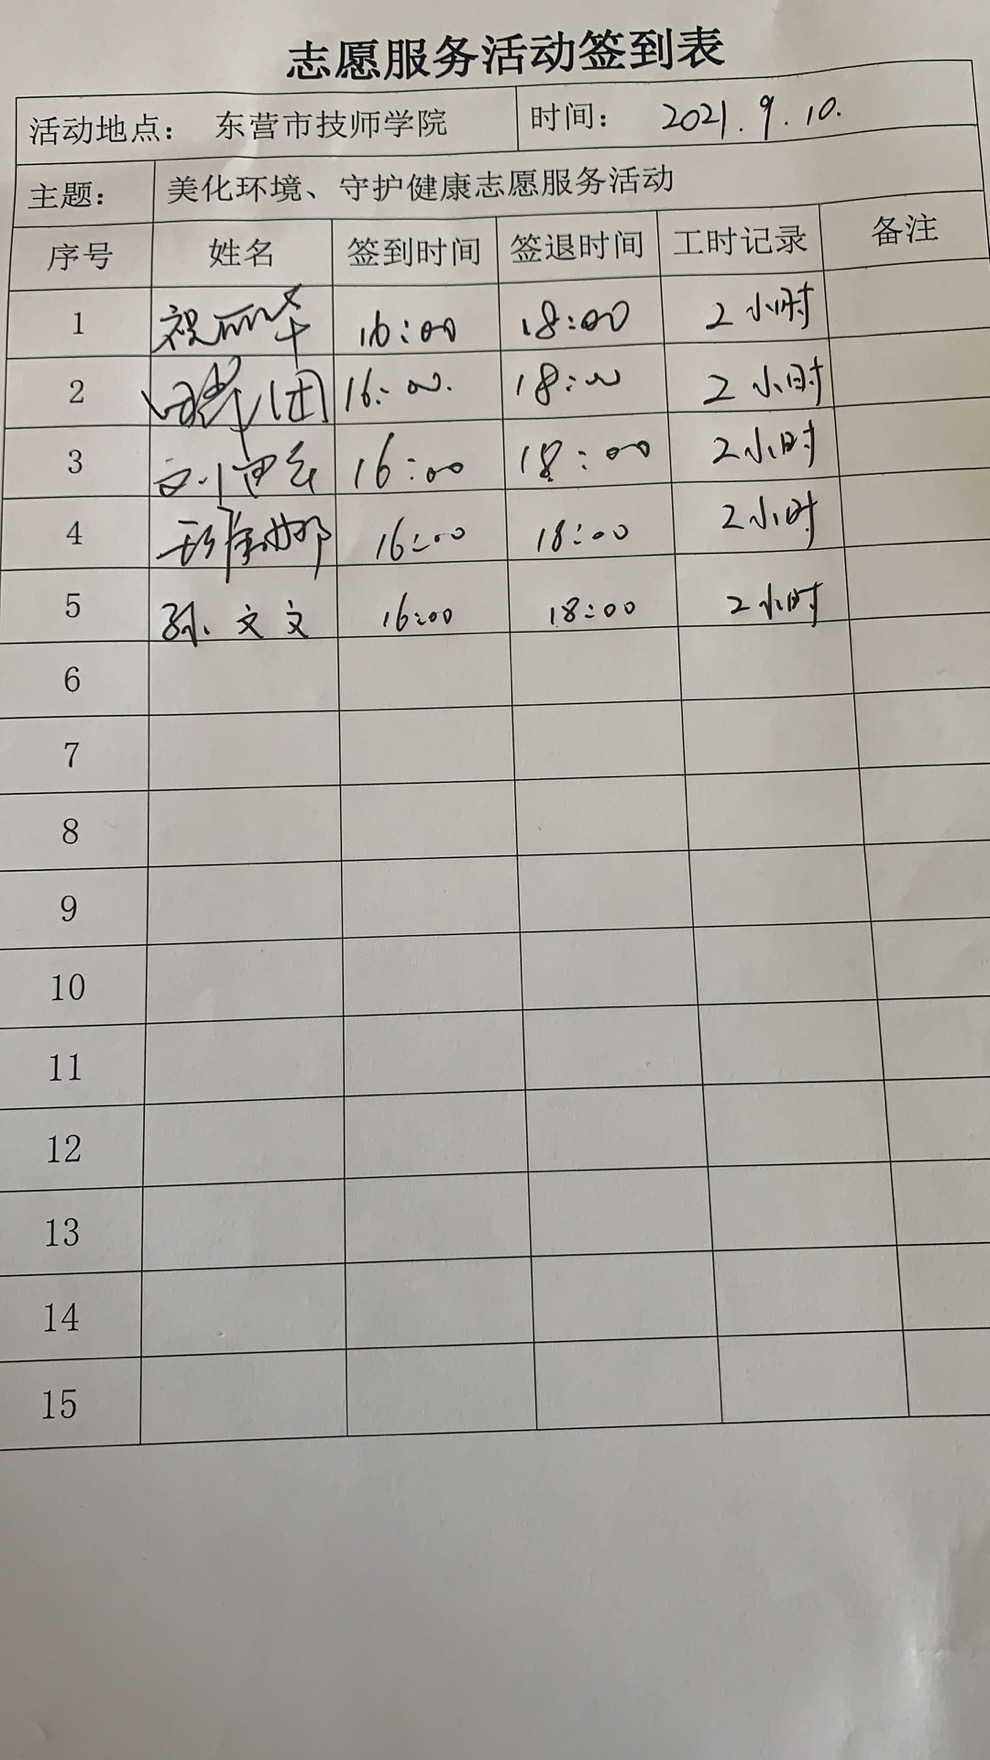 志愿服务活动签到表
活动地点： 东营市技师学院 时间： 2021.9.10.
主题： 美化环境、守护健康志愿服务活动
序号 姓名 签到时间 签退时间 工时记录 备注
1 祝丽华 16:00 18:00 2小时
2 16:00. 18:00 2小时
3 16:00 18:00 2小时
4 16:00 18:00 2小时
5 孙文文 16:00 18:00 2小时
6
7
8
9
10
11
12
13
14
15